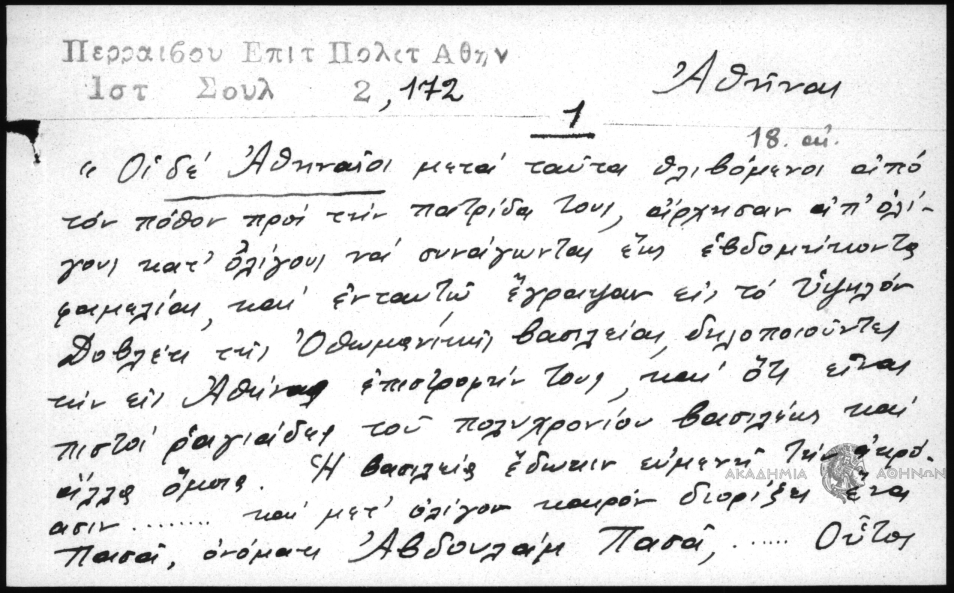 Περραιβου Επιτ Πολιτ Αθην
Ιστ Σουλ 2, 172
Ἀθῆναι
1
18. αἰ.
"Οἱ δέ Ἀθηναῖοι μετά ταῦτα θλιβόμενοι ἀπό
τόν πόθον πρός τήν πατρίδα τους, ἄρχησαν ἀπ' ὀλί-
γους κατ' ὀλίγους νά συνάγωνται ἕως ἑβδομήκοντα
φαμελίας, καί ἐνταυτῷ ἔγραψαν εἰς τό Ὑψηλόν
Δοβλέτι τῆς Ὀθωμανικῆς βασιλείας, δηλοποιοῦντες
τήν εἰς Ἀθήνας ἐπιστροφήν τους, καί ὅτι εἶναι
πιστοί ραγιάδες τοῦ πολυχρονίου βασιλέως καί
ἄλλα ὅμοια. Ἡ βασιλεία ἔδωκεν εὐμενῆ τήν ἀκρό-
ασιν ........ καί μετ' ὀλίγον καιρόν διορίζει ἕνα
Πασᾶ, ὀνόματι Ἀβδουλάμ Πασᾶ, ...... Οὗτος
ΑΚΑΔΗΜΙΑ ΑΘΗΝΩΝ